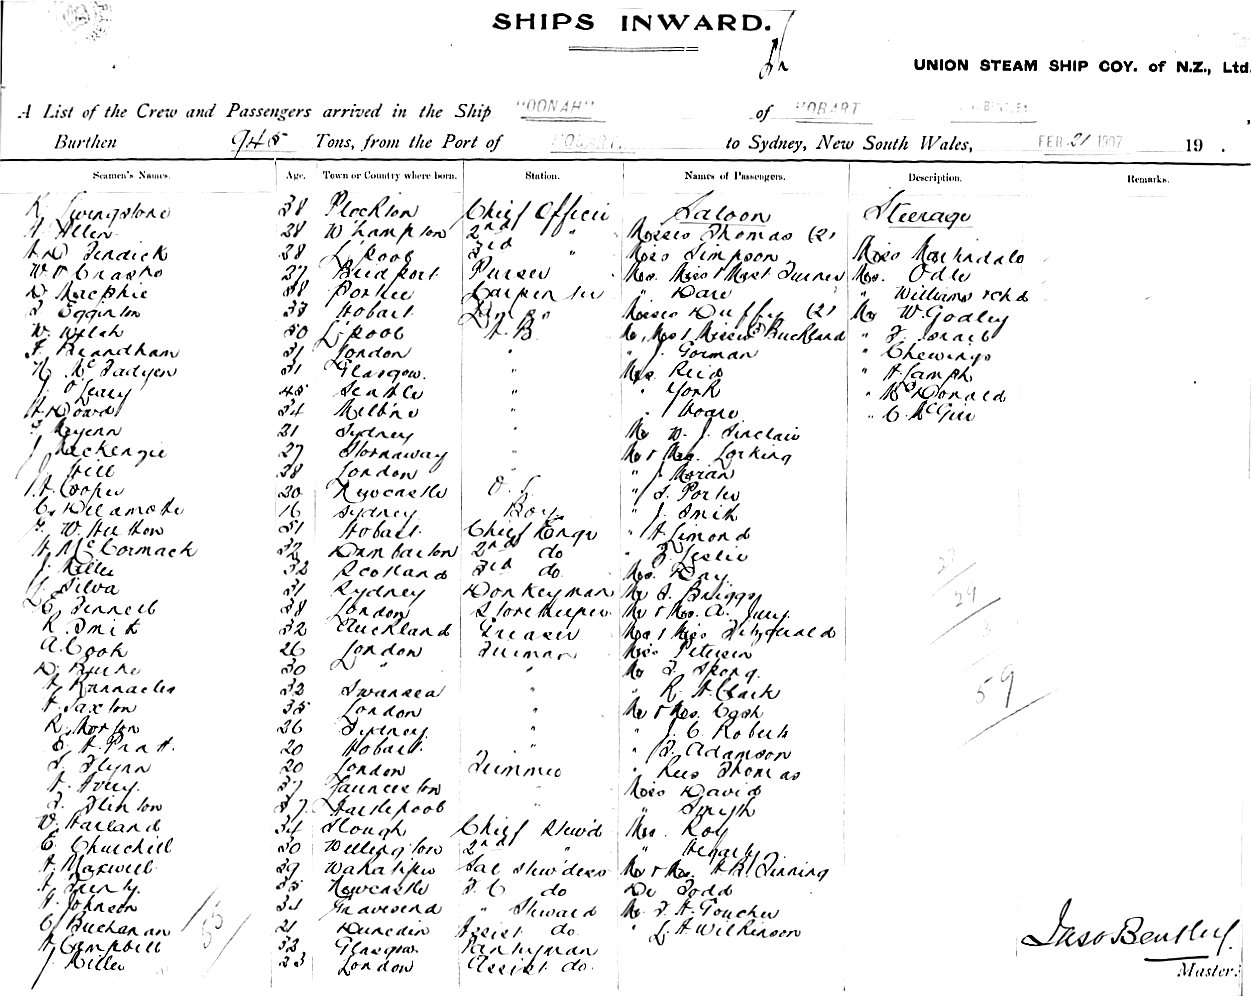 SHIPS INWARD.
UNION STEAM SHIP COY. of N.Z., Ltd
A List of the Crew and Passengers arrived in the Ship "OONAH" of HOBART J. BENTLEY
Burthen 945 Tons, from the Port of HOBART. to Sydney, New South Wales, FEB 21 1907 19 .
Seamen's Names. Age. Town or Country where born. Station. Names of Passengers. Description. Remarks.
K Livingstone 38 Plockton Chief Officer Saloon Steerage
A Allen 28 W'hampton 2nd " Misses Thomas (2)
Fendick 28 L'pool 3rd " Miss Simpson Miss Martindale
27 Bridport Purser Mrs. Miss & Mast Turner Mrs. Odle
D Macphie 38 Carpenter " Dare " Williams & chd
J Egginton 33 Hobart Lamps Misses Duffy (2) Mr W. Godley
W. Welsh 50 L'pool A.B. Mr, Mrs & Misses Buckland " Israel
F. Brandham 31 London " " J. Gorman " Chewings
N McFadyen 31 Glasgow. " Mrs. Reid " A Lamph
J. O'Leary 45 Seattle " " York " McDonald
A Doard 34 Melb'ne " " Hoare " C. McGee
21 Sydney " Mr W. J. Sinclair
J Mackenzie 27 Stornaway " Mr & Mrs. Larking
J Hill 28 London " " J Moran
A. Cooper 20 Newcastle O.S. " J. Porter
C. Delamotte 16 Sydney Boy " J. Smith
W. Hutton 51 Hobart Chief Engr " A Simond
A. McCormack 32 Dumbarton 2nd do " Leslie
J. Miller 32 Scotland 3rd do Mrs. Day
J. Silva 31 Sydney Donkeyman Mr J. Briggs
C. Fennell 38 London Storekeeper Mr & Mrs. A. Jury
R. Smith 32 Auckland Greaser Mrs & Miss Fitzgerald
A. Cook 26 London Fireman Miss Petersen
D Burke 30 " " Mr J. Spong.
A. Runnacles 32 Swansea " " R. A. Clark
A. Saxton 35 London " Mr & Mrs. Cash
R. Morton 26 Sydney. " " J. C. Roberts
E. A. Pratt. 20 Hobart " " J. Adamson
J. Flynn 20 London Trimmer " Rees Thomas
A Avery. 37 Launceston " Miss David
J. Flinton 37 Hartlepool " " Smyth
W. Harland 34 Slough Chief Stew'd Mrs. Roy
E. Churchill 30 Wellington 2nd " "
A. Maxwell 39 Wakatipu Sal Stew'dess Mr & Mrs. Finning
A Trinty. 35 Newcastle F.C. do Dr Todd
A. Johnson 31 Gravesend " Steward Mr J. A. Goucher
C Buchanan 21 Dunedin Assist do. " L. A Wilkinson
A. Campbell 32 Glasgow Pantryman
J. Miller 23 London Assist do.
29
59
55
Jas. Bentley.
Master.